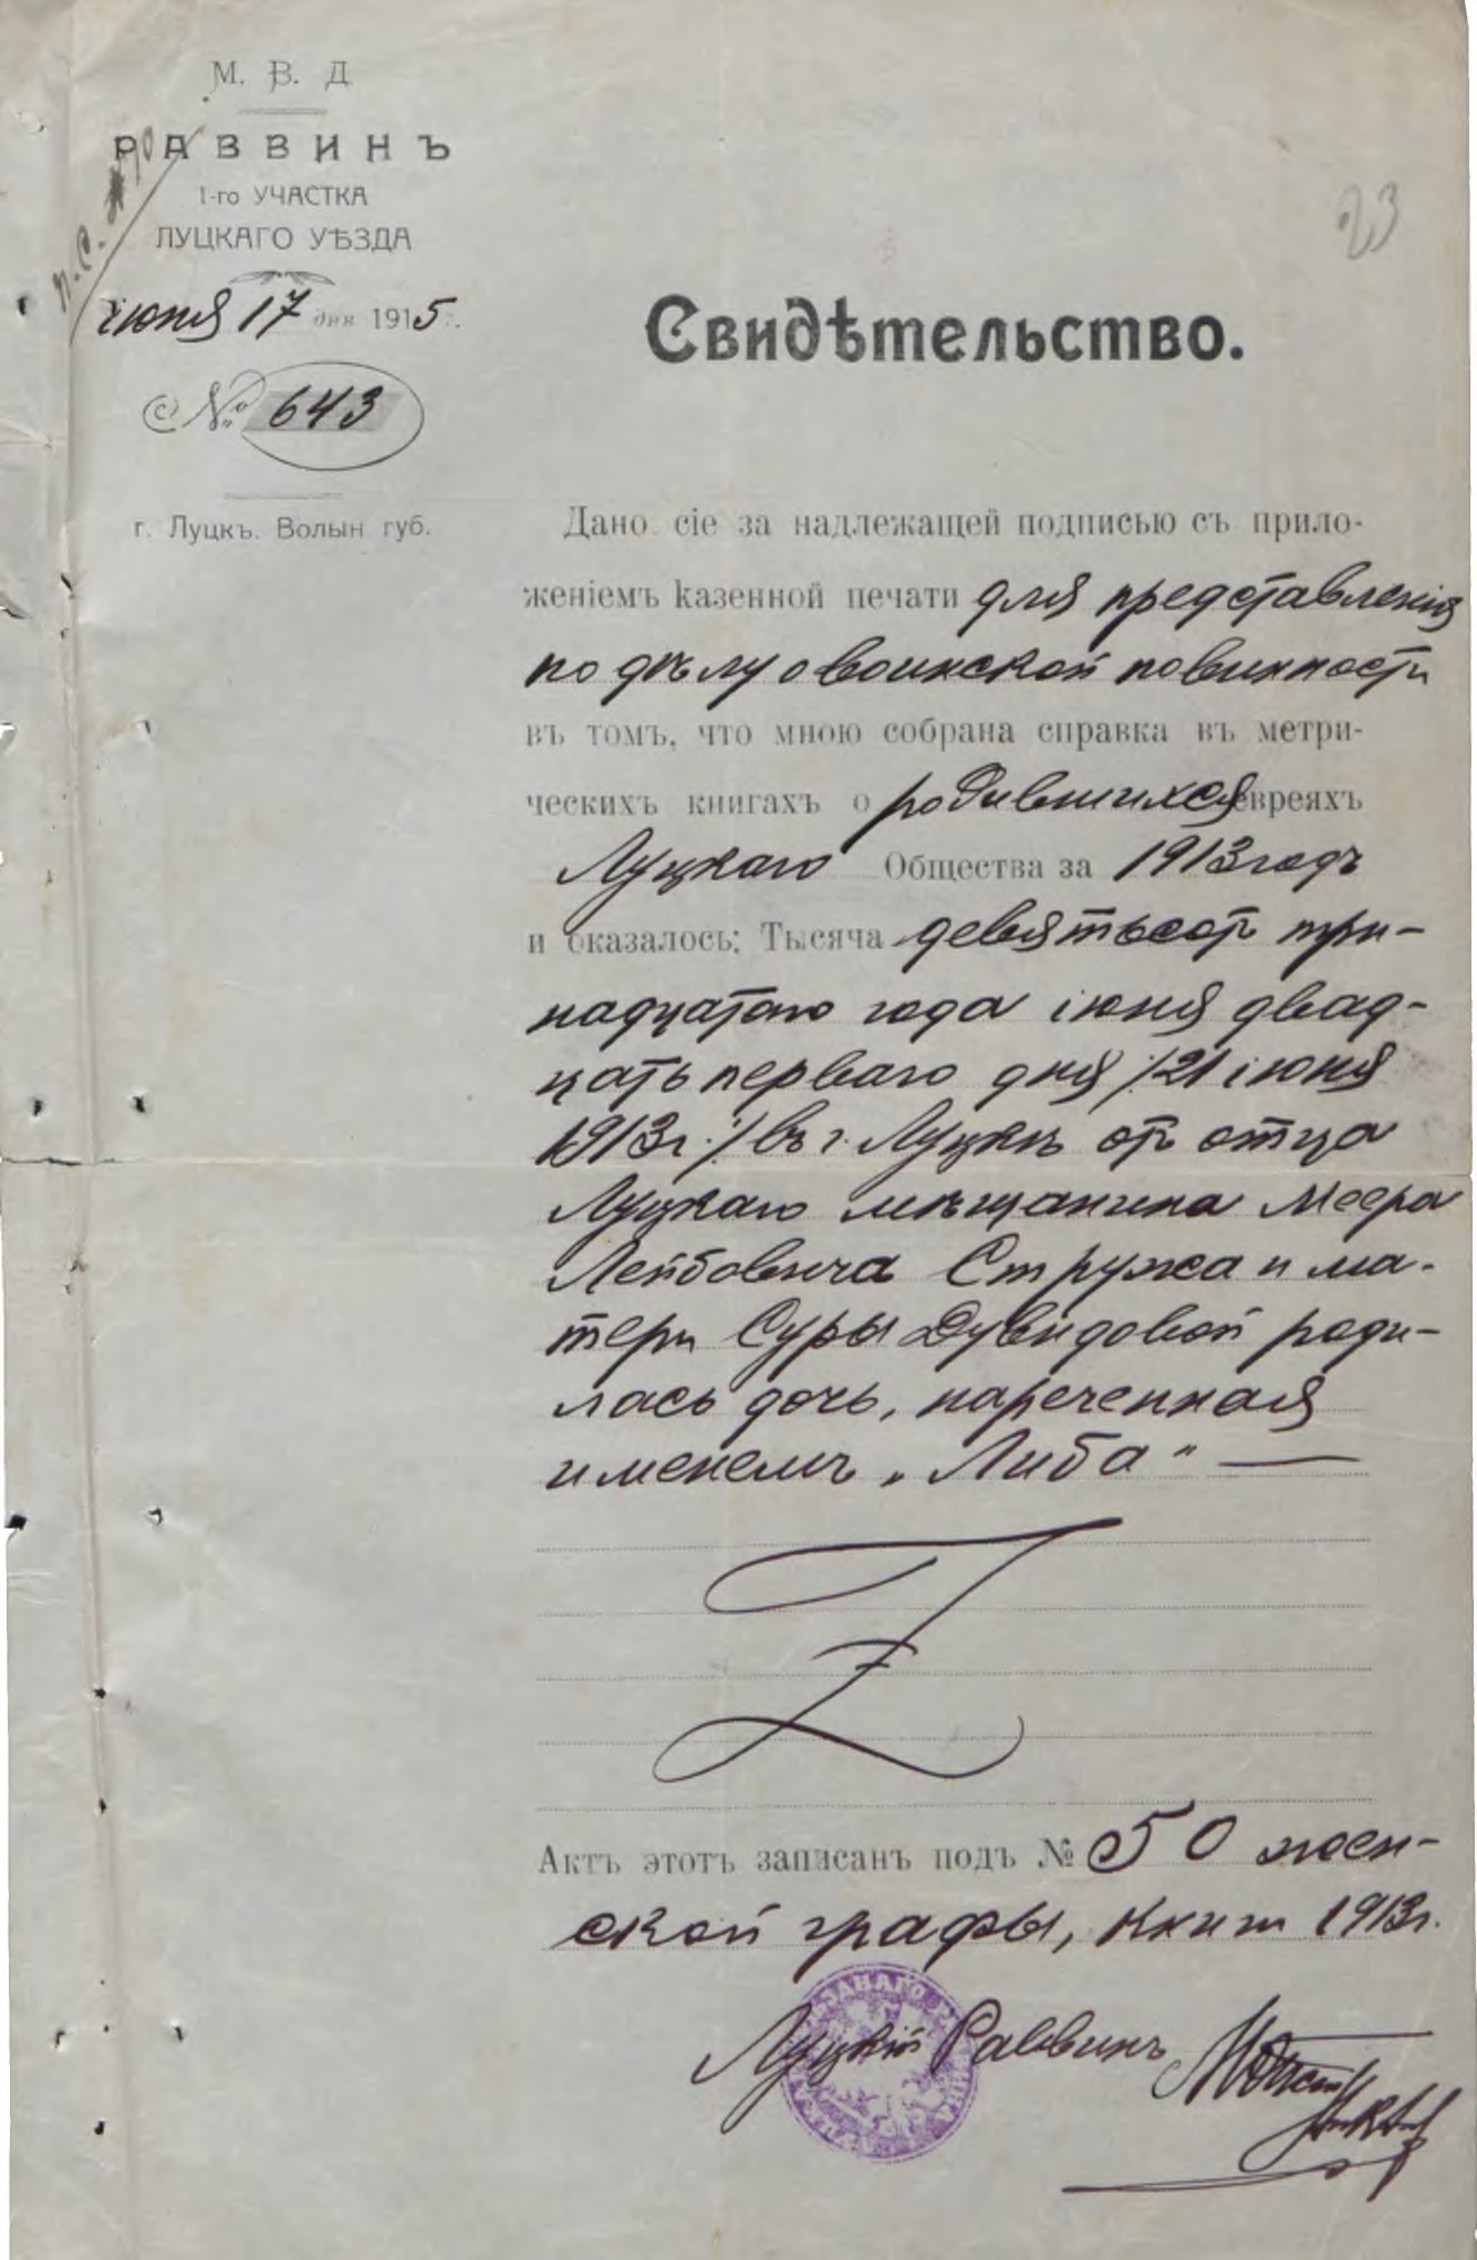 М. В. Д
РАВВИНЪ
1-го УЧАСТКА
ЛУЦКАГО УѢЗДА
п. С.
іюня 17 дня 1915 г.
№ 643
г. Луцкъ. Волын губ.
23
Свидѣтельство.
Дано сіе за надлежащей подписью съ прило-
женіемъ казенной печати для представленія
по дѣлу о воинской повинности
въ томъ, что мною собрана справка въ метри-
ческихъ книгахъ о родившихся евреяхъ
Луцкаго Общества за 1913 годъ
и оказалось: Тысяча девятьсот три-
надцатаго года іюня двад-
цать перваго дня /21 іюня
1913 г./ въ г. Луцкѣ от отца
Луцкаго мѣщанина Меера
Лейбовича Стружа и ма-
тери Суры Дувидовой роди-
лась дочь, нареченная
именемъ „Либа“ —
Актъ этотъ записанъ подъ № 50 жен-
ской графы, книги 1913 г.
Луцкій Раввинъ